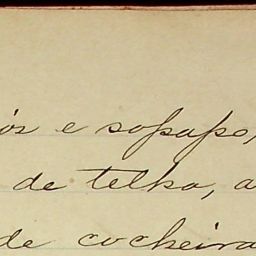 ós e sopapo,
de telha, a
de cocheira